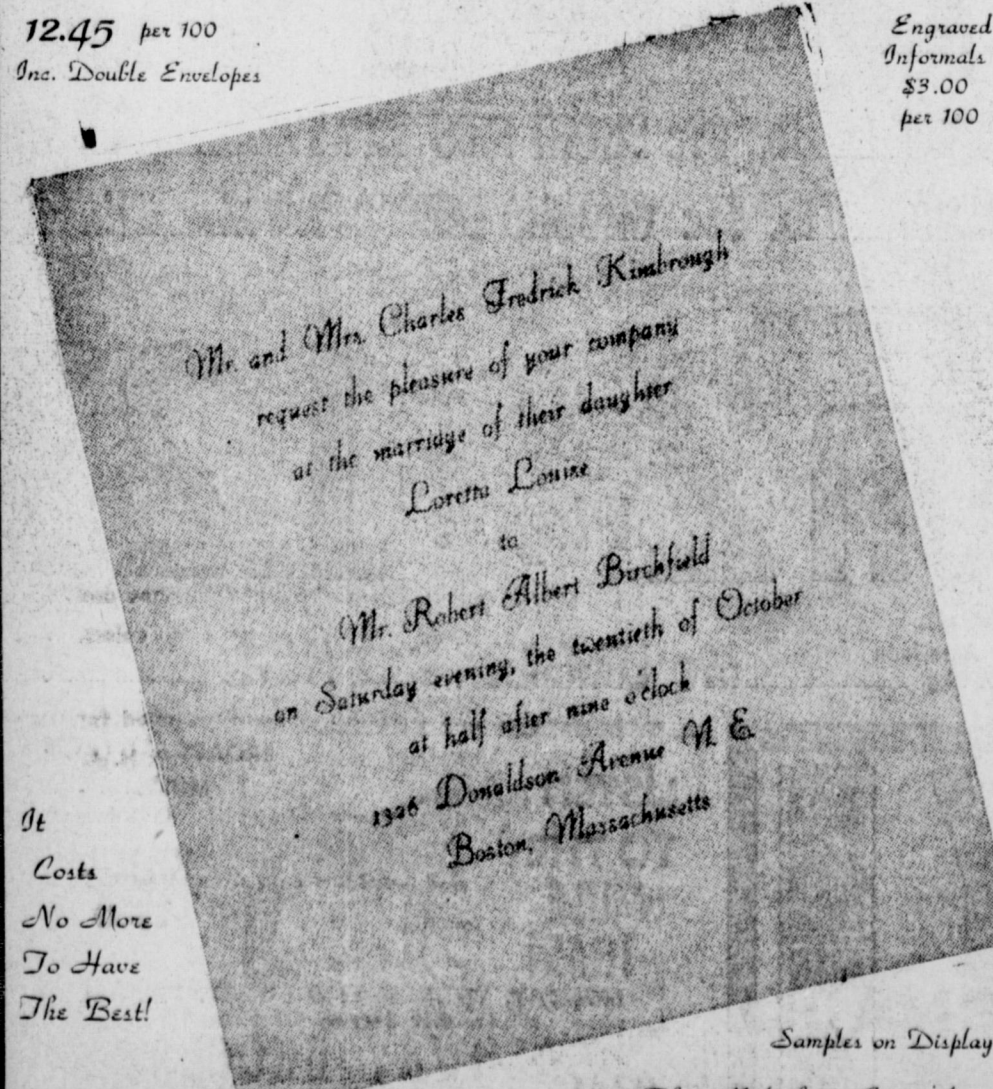 12.45 per 100
Inc. Double Envelopes
Engraved
Informals
$3.00
per 100
Mr. and Mrs. Charles Fredrick Kimbrough
request the pleasure of your company
at the marriage of their daughter
Loretta Louise
to
Mr. Robert Albert Birchfield
on Saturday evening, the twentieth of October
at half after nine o'clock
1326 Donaldson Avenue N. E.
Boston, Massachusetts
It
Costs
No More
To Have
The Best!
Samples on Display